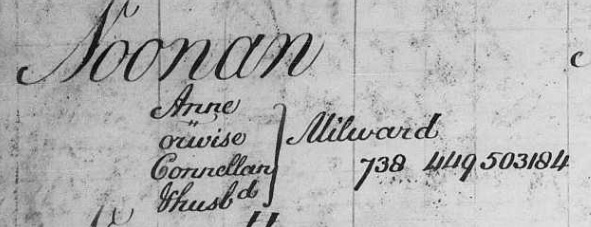 Noonan
Anne
orwise
Connellan
&husbd
Milward
738 449 503184